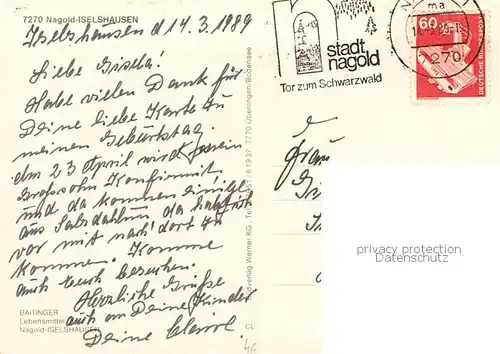 7270 Nagold-ISELSHAUSEN
Iselshausen d 14.3.1989
Liebe Gisela!
Habe vielen Dank für
Deine liebe Karte zu
meinen Geburtstag.
Am 23 April wird mein
Grossohn Konfirmiert
und da kommen einige
aus Salzdahlum, da
vor mit nach dort zu
komme. Komme
auch Euch besuchen.
Herzliche Grüße
auch an Deine Kinder
Deine
BAITINGER
Lebensmittel
Nagold-ISELSHAUSEN
Werner KG 7770 Überlingen/Bodensee
stadt
nagold
Tor zum Schwarzwald
7270
60
DEUTSCHE BUNDESPOST
Frau
privacy protection